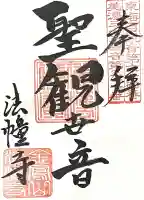 奉拝
聖観世音
法幢寺